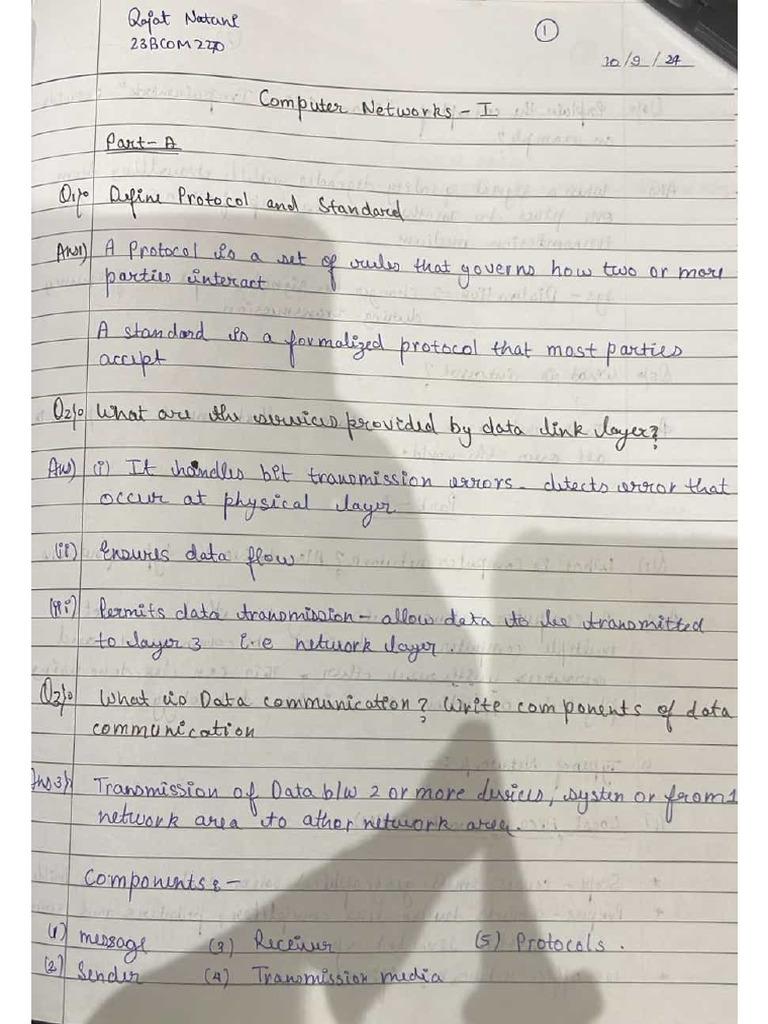 Rajat Natani
23BCOM220
1
10/9/24
Computer Networks - I
Part-A
Q1) Define Protocol and Standard
Ans1) A Protocol is a set of rules that governs how two or more
parties interact
A standard is a formalized protocol that most parties
accept
Q2) What are the services provided by data link layer?
Ans) (i) It handles bit transmission errors - detects error that
occur at physical layer
(ii) Ensures data flow
(iii) Permits data transmission - allow data to be transmitted
to layer 3 i.e network layer.
Q3) What is Data communication? Write components of data
communication
Ans3) Transmission of Data b/w 2 or more devices, system or from 1
network area to athor network area.
Components :-
(1) message (3) Receiver (5) Protocols.
(2) Sender (4) Transmission media